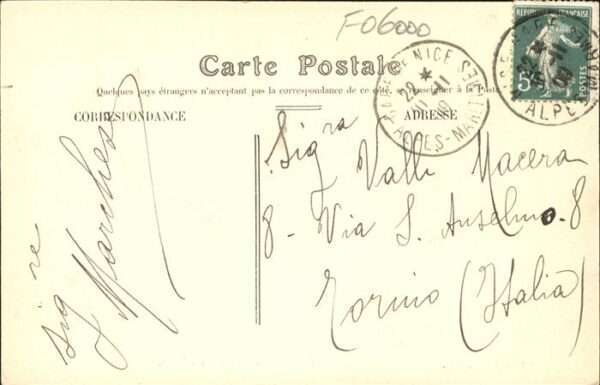 F06000
RÉPUBLIQUE FRANÇAISE
5c
POSTES
NICE
22 * 11
ALPES-MARIT
Carte Postale
Quelques pays étrangers n'acceptent pas la correspondance de ce côté. (Se renseigner à la Poste
CORRESPONDANCE
ADRESSE
Sig.ra
Valli Macera
8 - Via S. Anselmo. 8
Torino (Italia)
Sig re